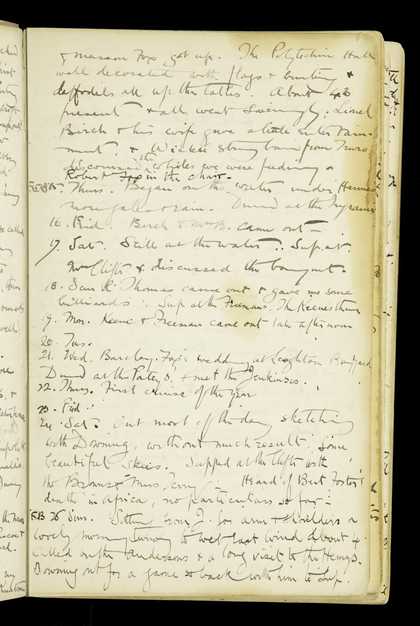 & Masson Fox got up. The Polytechnic Hall
well decorated with flags & bunting &
daffodels all up the tables. About
present & all went swingly. Lionel
Birch & his wife gave a little entertain-
ment & string band from Truro
while we were feeding
Robert Fox in the chair.
FEB 15. Thurs. Began on the water under
more gales & rain. Dined at the Ingrams
16. Frid. Birch & Mrs B. came out
17. Sat. Still at the water. Sup at
Mrs Clifts & discussed the banquet.
18. Sun. Thomas came out & gave us some
billiards. Sup at the Freemans. The Keenes there
19. Mon. Keene & Freeman came out late afternoon
20. Tues.
21. Wed. Barclay Fox's wedding at Leighton Buzzard
Dined at the & met the Jenkinses.
22. Thurs. First cruise of the year
23. Frid.
24. Sat. Out most of the day sketching
with Downing, without much result. Some
beautiful skies. Supped at the Clifts with
the & Miss Terry. Heard of Bert Foster's
death in Africa, no particulars so far.
FEB 25 Sun. Sitting from J. for arm & shoulders a
lovely morning turning to wet last wind about 4.
Called on the Andersons & a long visit to the Hemys.
Downing out for a game & back with him to sup.